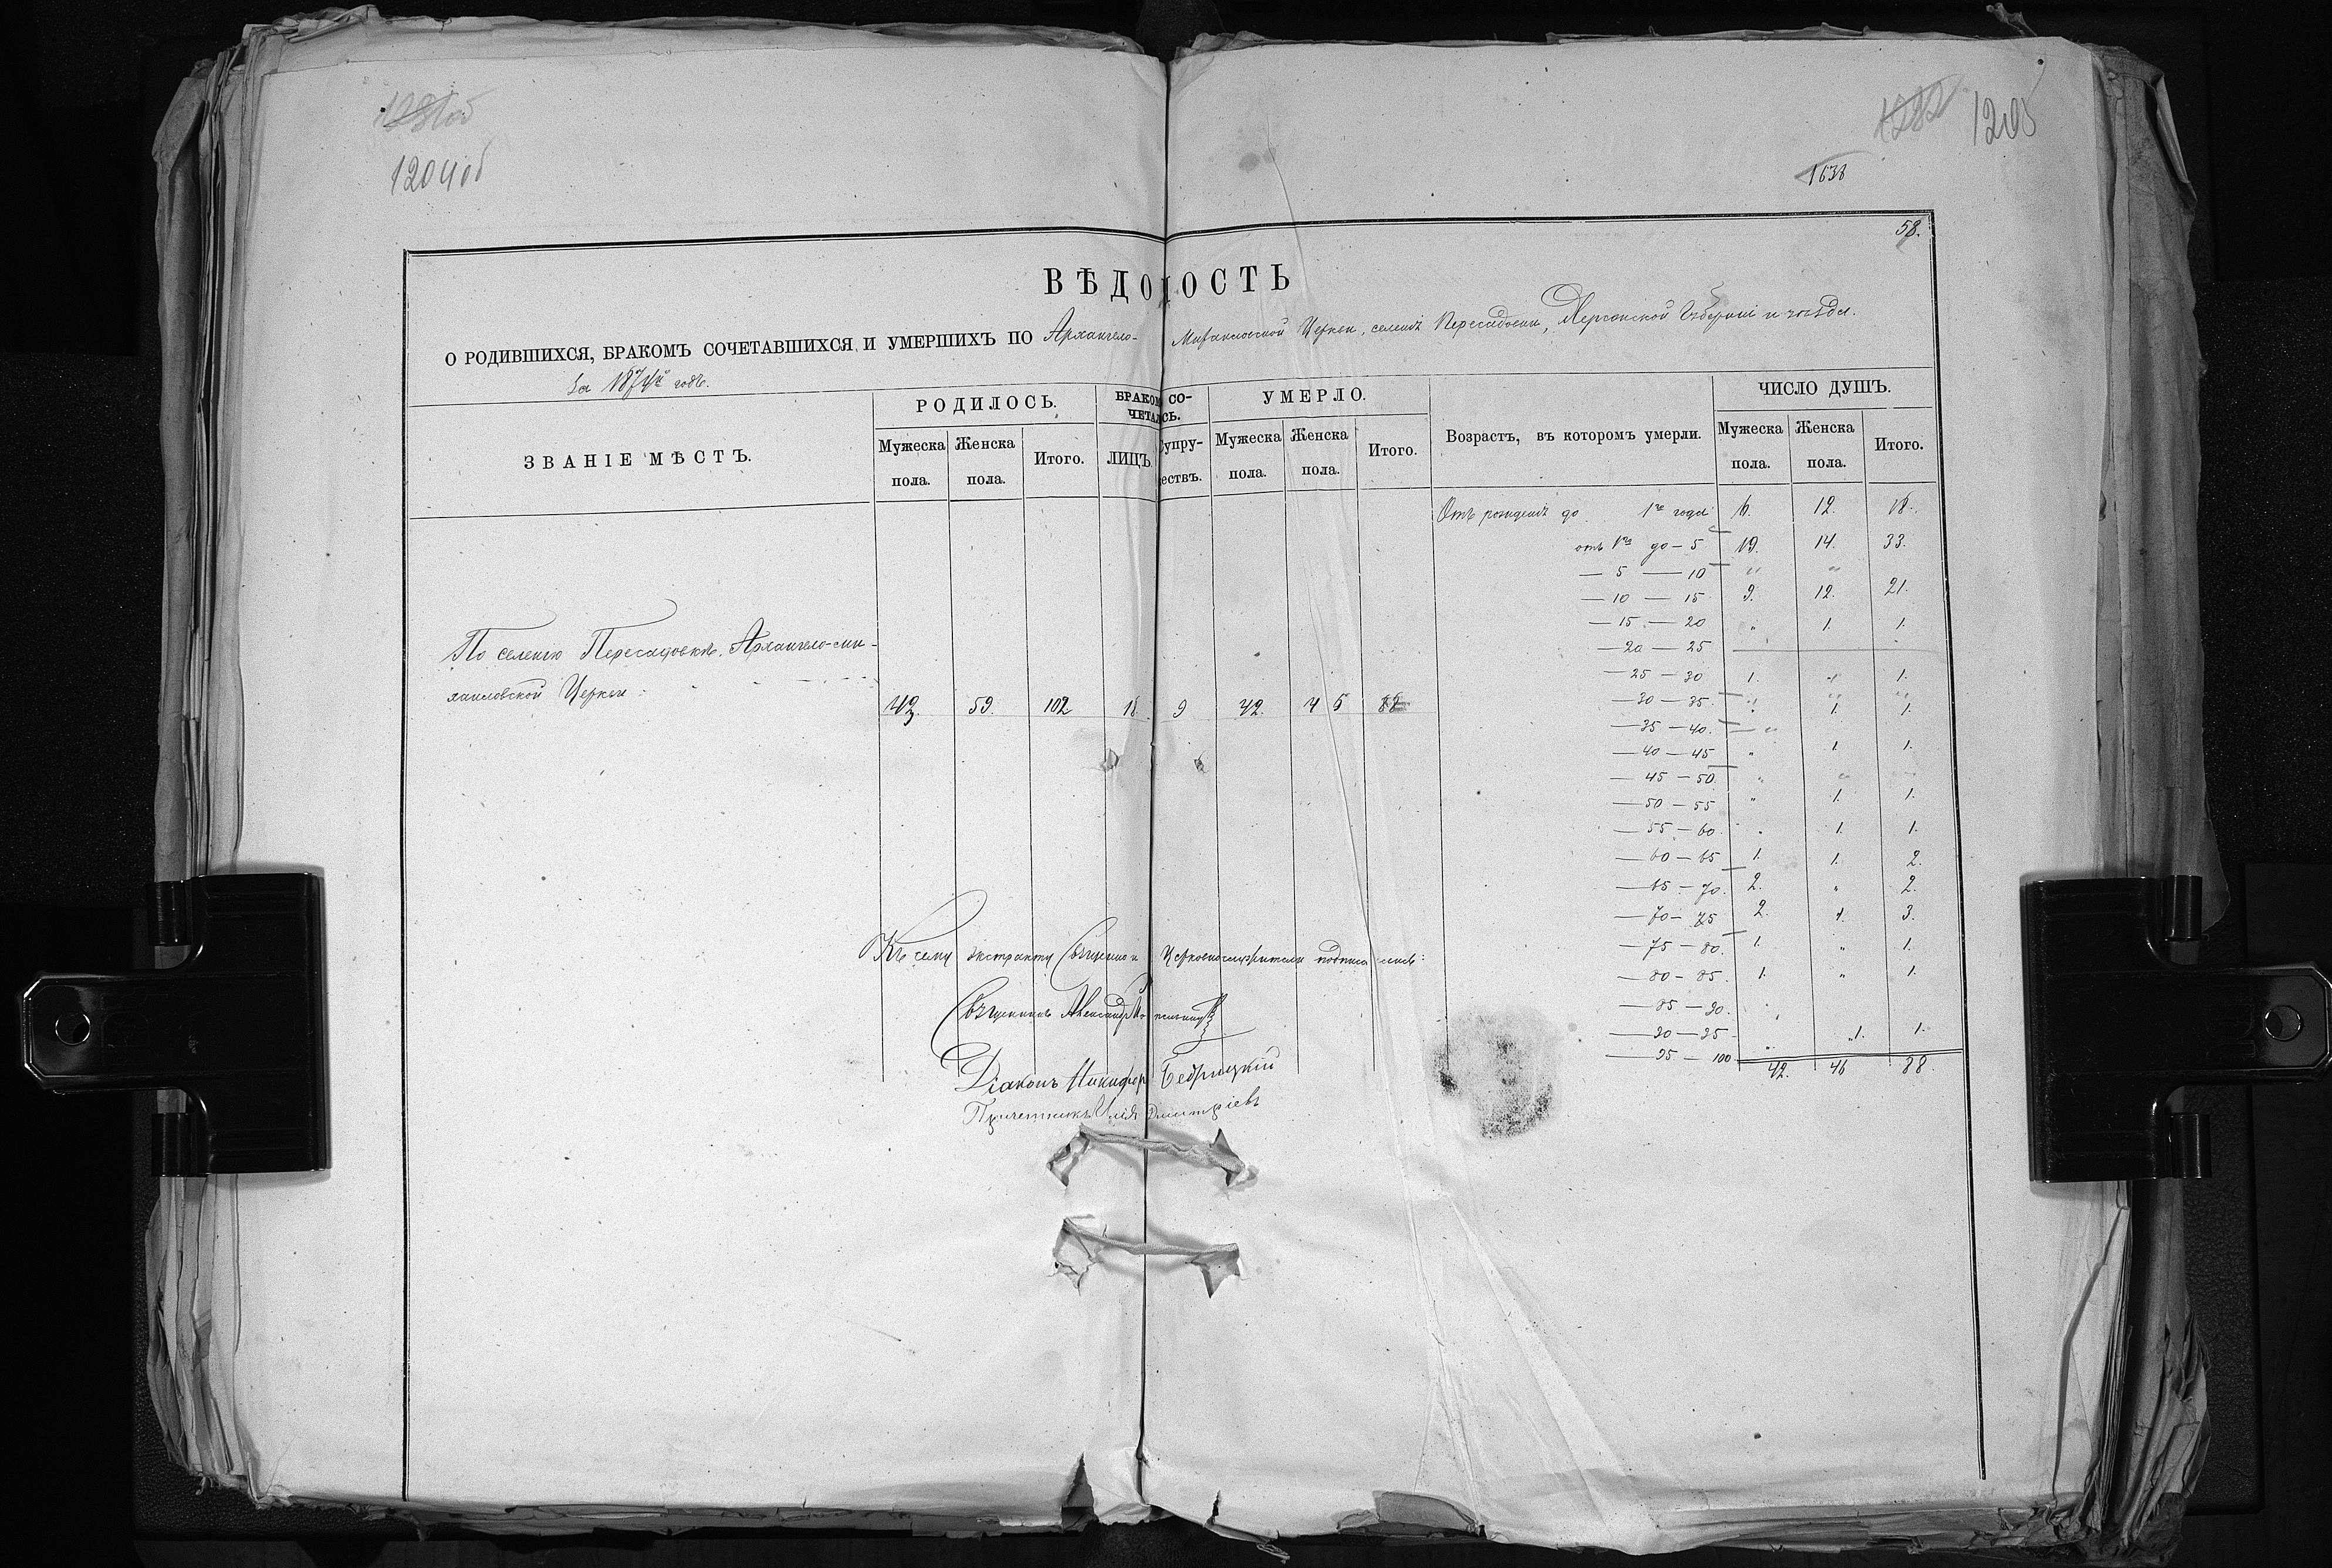 1204об
1205
1638
58.
ВѢДОМОСТЬ
О РОДИВШИХСЯ, БРАКОМЪ СОЧЕТАВШИХСЯ И УМЕРШИХЪ ПО Архангело-Михаиловской Церкви, селенія Пересадовки, Херсонской Губерніи и уѣзда.
За 1874й годъ.
ЗВАНІЕ МѢСТЪ.
РОДИЛОСЬ.
БРАКОМЪ СО-
ЧЕТАЛОСЬ.
УМЕРЛО.
Возрастъ, въ которомъ умерли.
ЧИСЛО ДУШЪ.
Мужеска пола. Женска пола. Итого. ЛИЦЪ. Супру-
жествъ. Мужеска пола. Женска пола. Итого. Мужеска пола. Женска пола. Итого.
Отъ рожденія до 1го года 6. 12. 18.
отъ 1го до — 5 19. 14. 33.
— 5 — 10 " "
— 10 — 15 9. 12. 21.
— 15 — 20 " 1. 1.
— 20 — 25
— 25 — 30 1. " 1.
— 30 — 35. " " "
" 1. 1.
— 35 — 40. — "
— 40 — 45 " 1. 1.
— 45 — 50. " " "
— 50 — 55 " 1. 1.
— 55 — 60. " 1. 1.
— 60 — 65 1. 1. 2.
— 65 — 70. 2. " 2.
— 70 — 75 2. 1. 3.
— 75 — 80. 1. " 1.
— 80 — 85. 1. " 1.
— 85 — 90.
— 90 — 95 " 1. 1.
— 95 — 100
42. 46 88.
По селенію Пересадовкѣ, Архангело-ми-
хаиловской Церкви
43. 59. 102 18. 9 42. 46 88
Къ сему экстракту Священно и Церковнослужители подписались:
Священникъ Александръ
Діаконъ Никифоръ Бедрицкій
Причетникъ Илія Димитріевъ